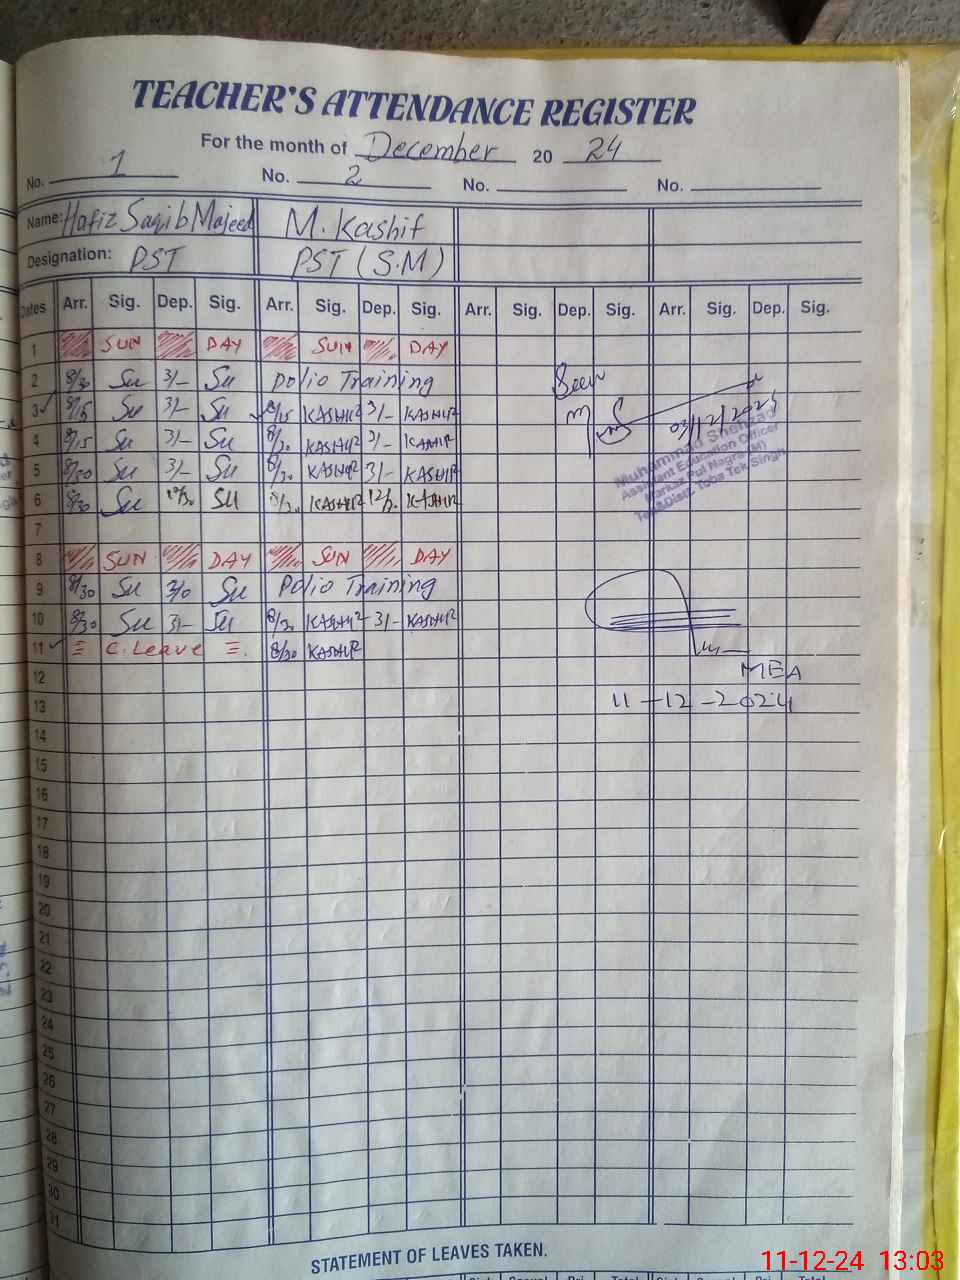 TEACHER'S ATTENDANCE REGISTER
For the month of December 20 24
No. 1 No. 2 No. No.
Name: Hafiz Saqib Majeed M. Kashif
Designation: PST PST (S.M)
Dates Arr. Sig. Dep. Sig. Arr. Sig. Dep. Sig. Arr. Sig. Dep. Sig. Arr. Sig. Dep. Sig.
1 SUN DAY SUN DAY
2 8/30 Su 3/- Su Polio Training Seen
3 8/15 Su 3/- Su 8/15 KASHIF 3/- KASHIF
4 8/15 Su 3/- Su 8/30 KASHIF 3/- KASHIF
5 8/30 Su 3/- Su 8/30 KASHIF 3/- KASHIF
6 8/30 Su 12/30 Su 8/30 KASHIF 12/30 KASHIF
Muhammad Shehzad
Assistant Education Officer
Markaz Pul Nagra (M)
Teh&Distt. Toba Tek Singh
7
8 SUN DAY SUN DAY
9 8/30 Su 3/0 Su Polio Training
10 8/30 Su 3/- Su 8/30 KASHIF 3/- KASHIF
11 C. Leave 8/30 KASHIF
MEA
12
11-12-2024
13
14
15
16
17
18
19
20
21
22
23
24
25
26
27
28
29
30
31
STATEMENT OF LEAVES TAKEN.
11-12-24 13:03